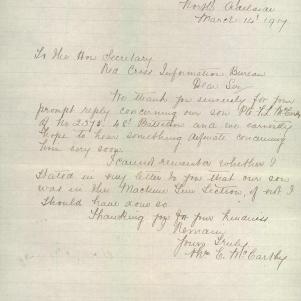 North Adelaide
March 14th 1917
To The Hon Secretary
Red Cross Information Bureau
Dear Sir
We thank you sincerely for your
prompt reply concerning our son Pte McCarthy
of No 2375 Battalion and we earnestly
hope to hear something definite concerning
him very soon.
I cannot remember whether I
stated in my letter to you that our son
was in the Machine Gun Section, if not I
should have done so
Thanking you for your kindness
I Remain
Yours Truly
Mrs E. McCarthy